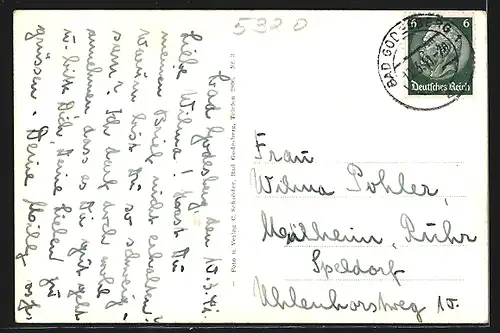 5320
Bad Godesberg den 10.3.41.
Liebe Wilma! Hast Du
meinen Brief nicht erhalten?
Warum bist Du so schweig-
sam? Ich darf doch wohl
annehmen dass es Dir gut geht
u. bitte Dich, Deine Lieben zu
grüssen. Deine
Foto u. Verlag C. Schröder, Bad Godesberg, Telefon 2805. Nr. 3
BAD GODESBERG 1
6 6
Deutsches Reich
Frau
Wilma Pohler,
Mülheim, Ruhr
Speldorf
Uhlenhorstweg 10.